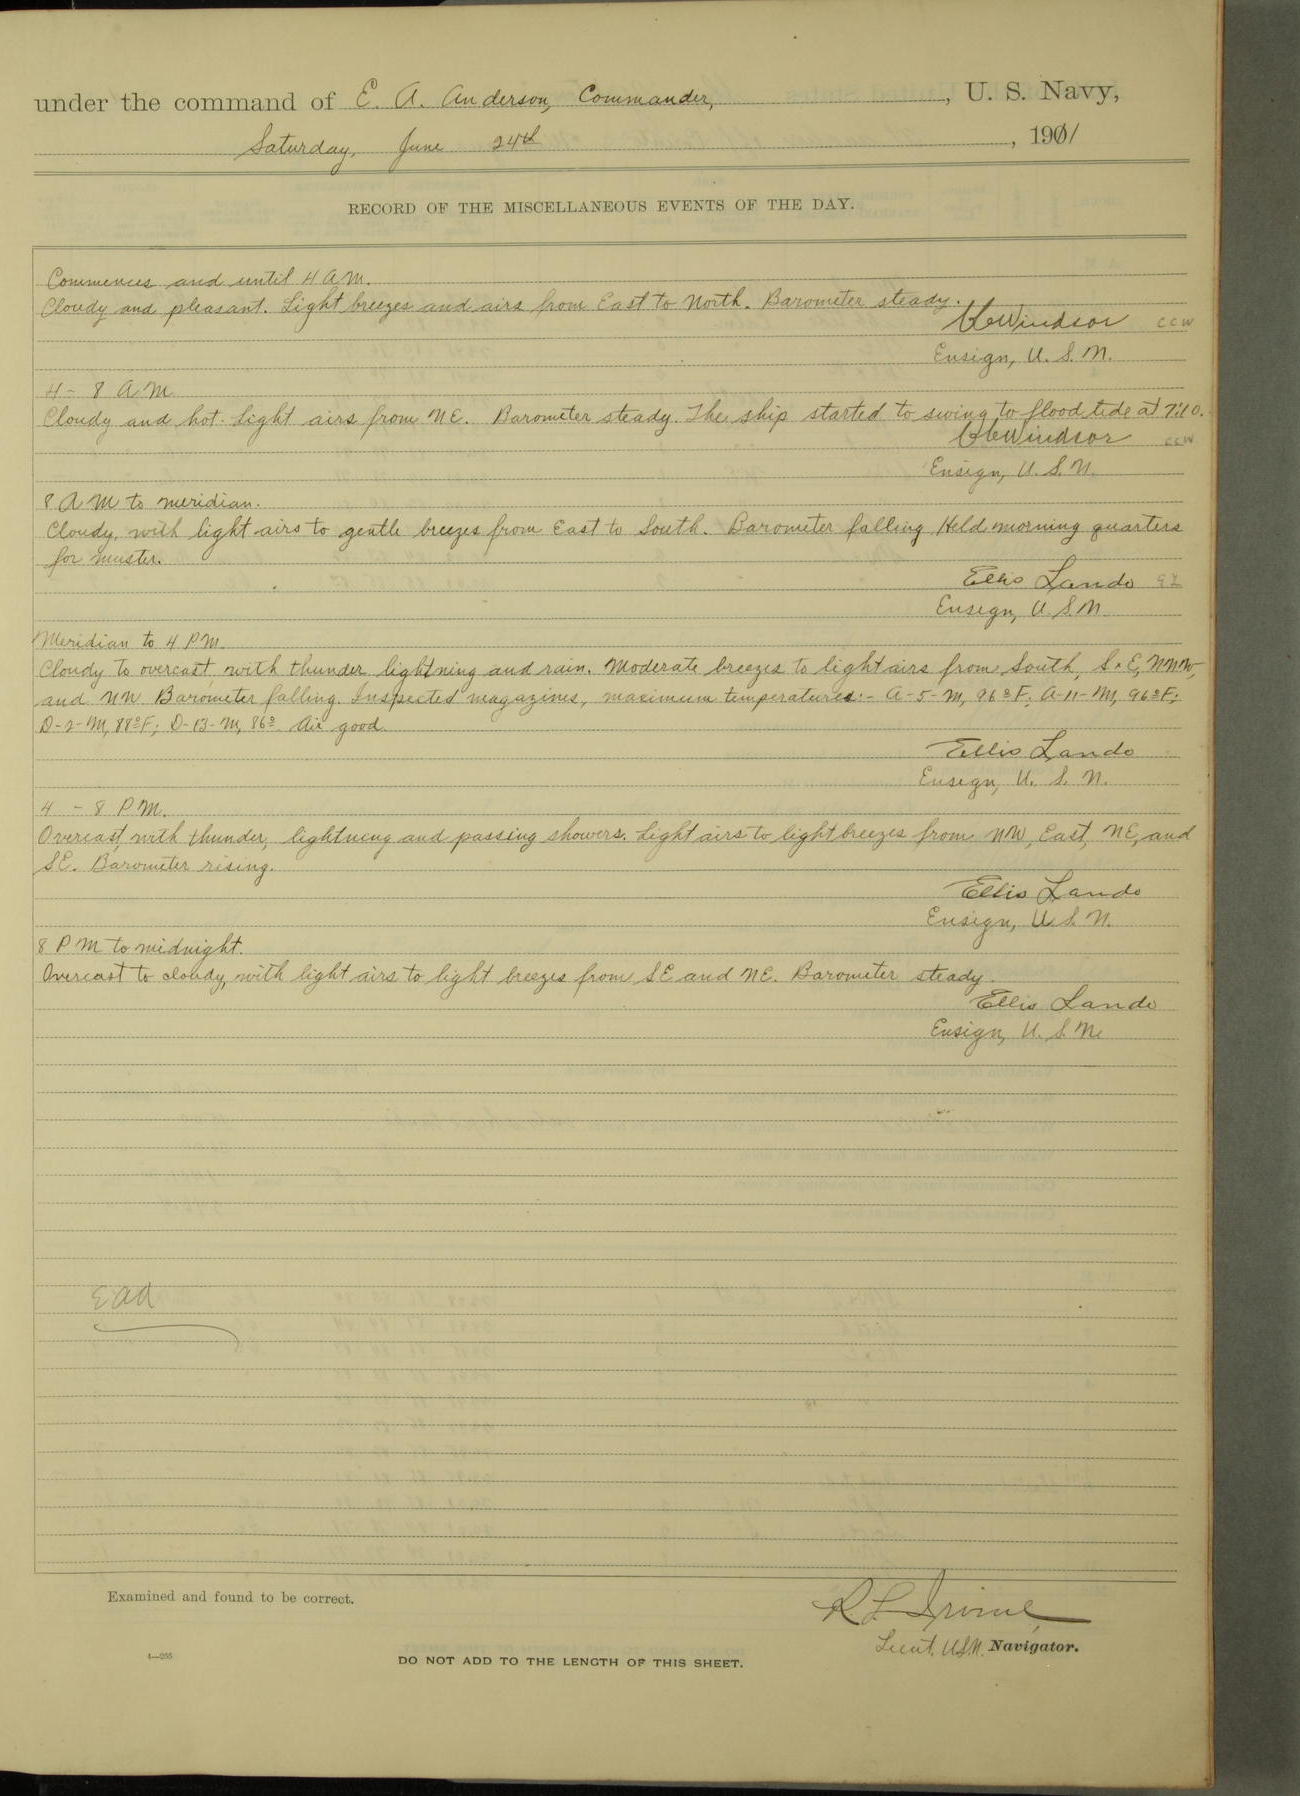 under the command of E. A. Anderson, Commander, , U. S. Navy,
Saturday, June 24th , 1901
RECORD OF THE MISCELLANEOUS EVENTS OF THE DAY.
Commences and until 4 A.M.
Cloudy and pleasant. Light breezes and airs from East to North. Barometer steady.
Windsor CCW
Ensign, U. S. N.
4 - 8 A M
Cloudy and hot. Light airs from NE. Barometer steady. The ship started to swing to flood tide at 7:10.
Windsor CCW
Ensign, U. S. N.
8 A M to meridian.
Cloudy, with light airs to gentle breezes from East to South. Barometer falling Held morning quarters
for muster.
Ellis Lando
Ensign, U. S. N.
Meridian to 4 P M.
Cloudy to overcast, with thunder, lightning and rain. Moderate breezes to light airs from South, S.E, NNW,
and NW Barometer falling. Inspected magazines, maximum temperatures:- A-5-M, 96°F; A-11-M, 96°F;
D-2-M, 88°F; D-13-M, 86°. Air good.
Ellis Lando
Ensign, U. S. N.
4 - 8 P M.
Overcast, with thunder, lightning and passing showers. Light airs to light breezes from NW, East, NE, and
SE. Barometer rising.
Ellis Lando
Ensign, U. S. N.
8 P M to midnight.
Overcast to cloudy, with light airs to light breezes from SE and NE. Barometer steady.
Ellis Lando
Ensign, U. S. N.
Examined and found to be correct.
R L Irvine
Lieut. U.S.N. Navigator.
4—255
DO NOT ADD TO THE LENGTH OF THIS SHEET.